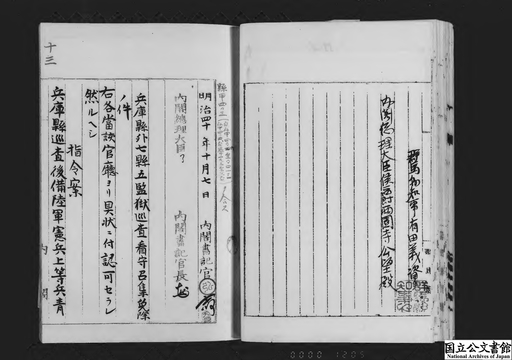 群馬縣知事有田義資
内閣總理大臣侯爵西園寺公望殿
明治四十年十月七日
内閣書記官
内閣總理大臣
内閣書記官長
兵庫縣外七縣五監獄巡査看守召集免除
ノ件
右各當該官廳ヨリ具狀ニ付認可セラレ
然ルヘシ
指令案
兵庫縣巡査後備陸軍憲兵上等兵青
十三
内閣
0000 1205
国立公文書館
National Archives of Japan